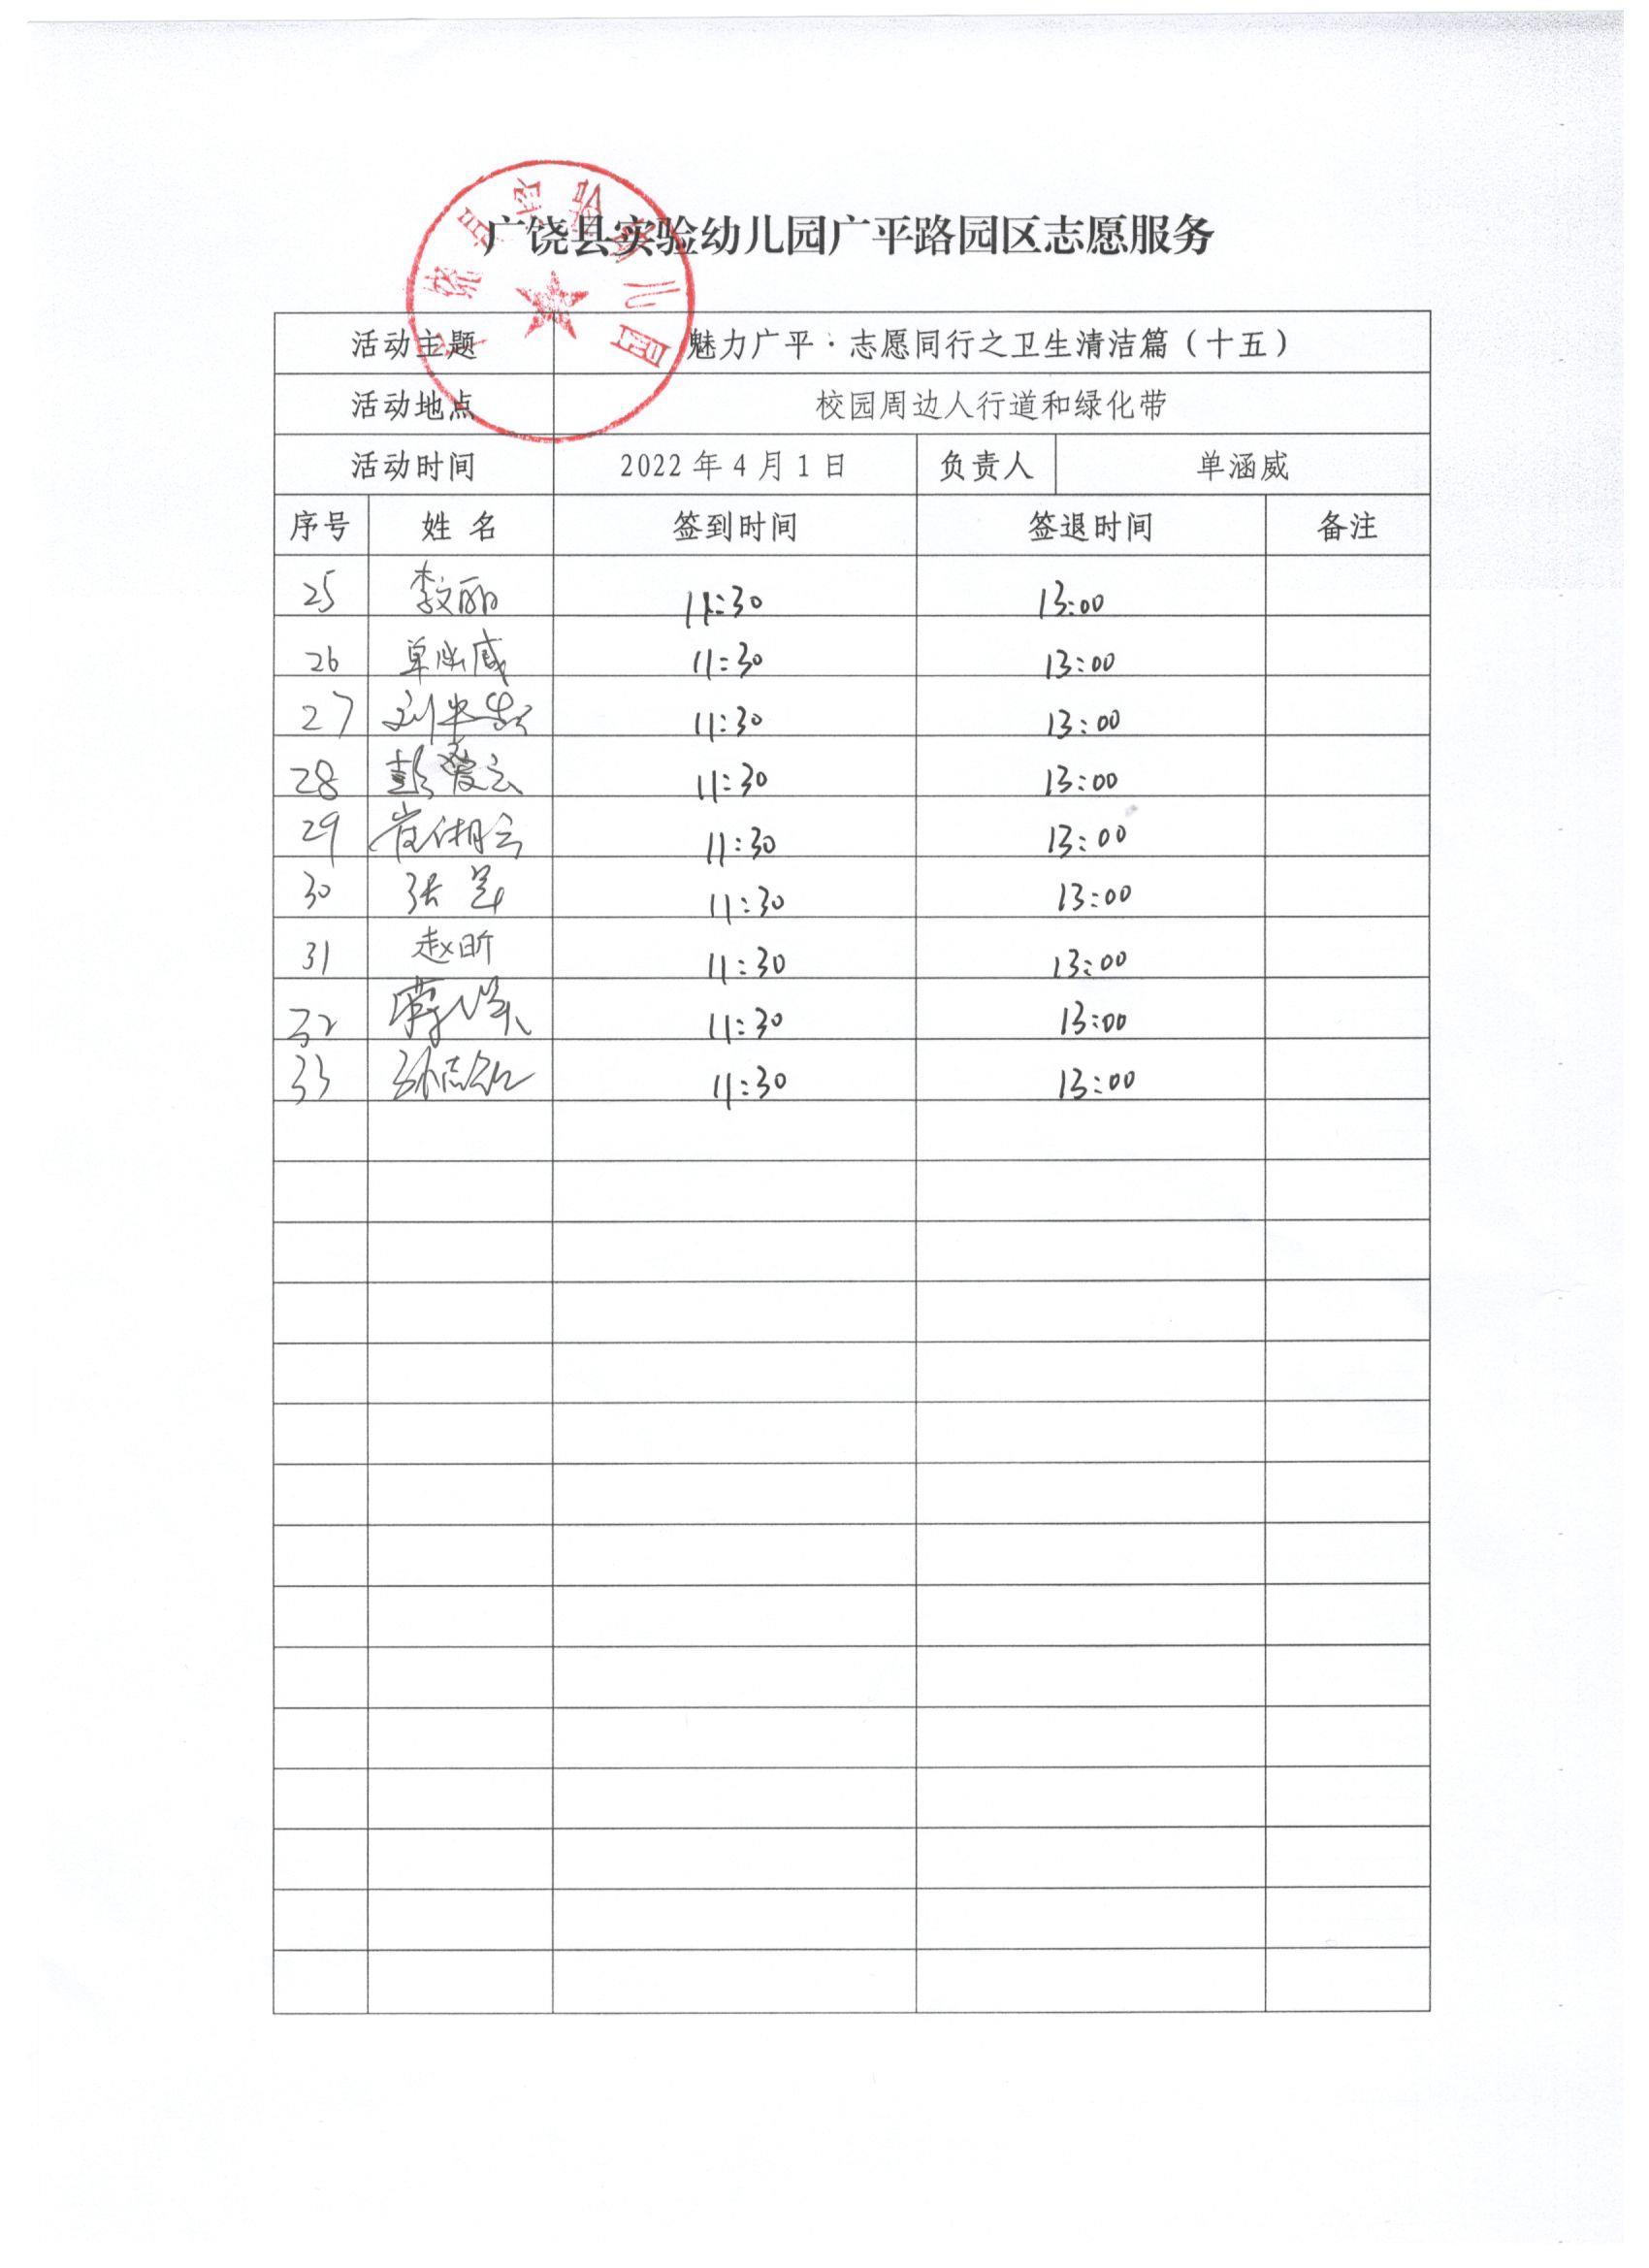 广饶县实验幼儿园广平路园区志愿服务
活动主题 魅力广平·志愿同行之卫生清洁篇（十五）
活动地点 校园周边人行道和绿化带
活动时间 2022年4月1日 负责人 单涵威
序号 姓名 签到时间 签退时间 备注
25 李文丽 11:30 13:00
26 单涵威 11:30 13:00
27 11:30 13:00
28 彭爱云 11:30 13:00
29 崔相云 11:30 13:00
30 张 11:30 13:00
31 赵昕 11:30 13:00
32 11:30 13:00
33 孙志 11:30 13:00
县实验幼儿园